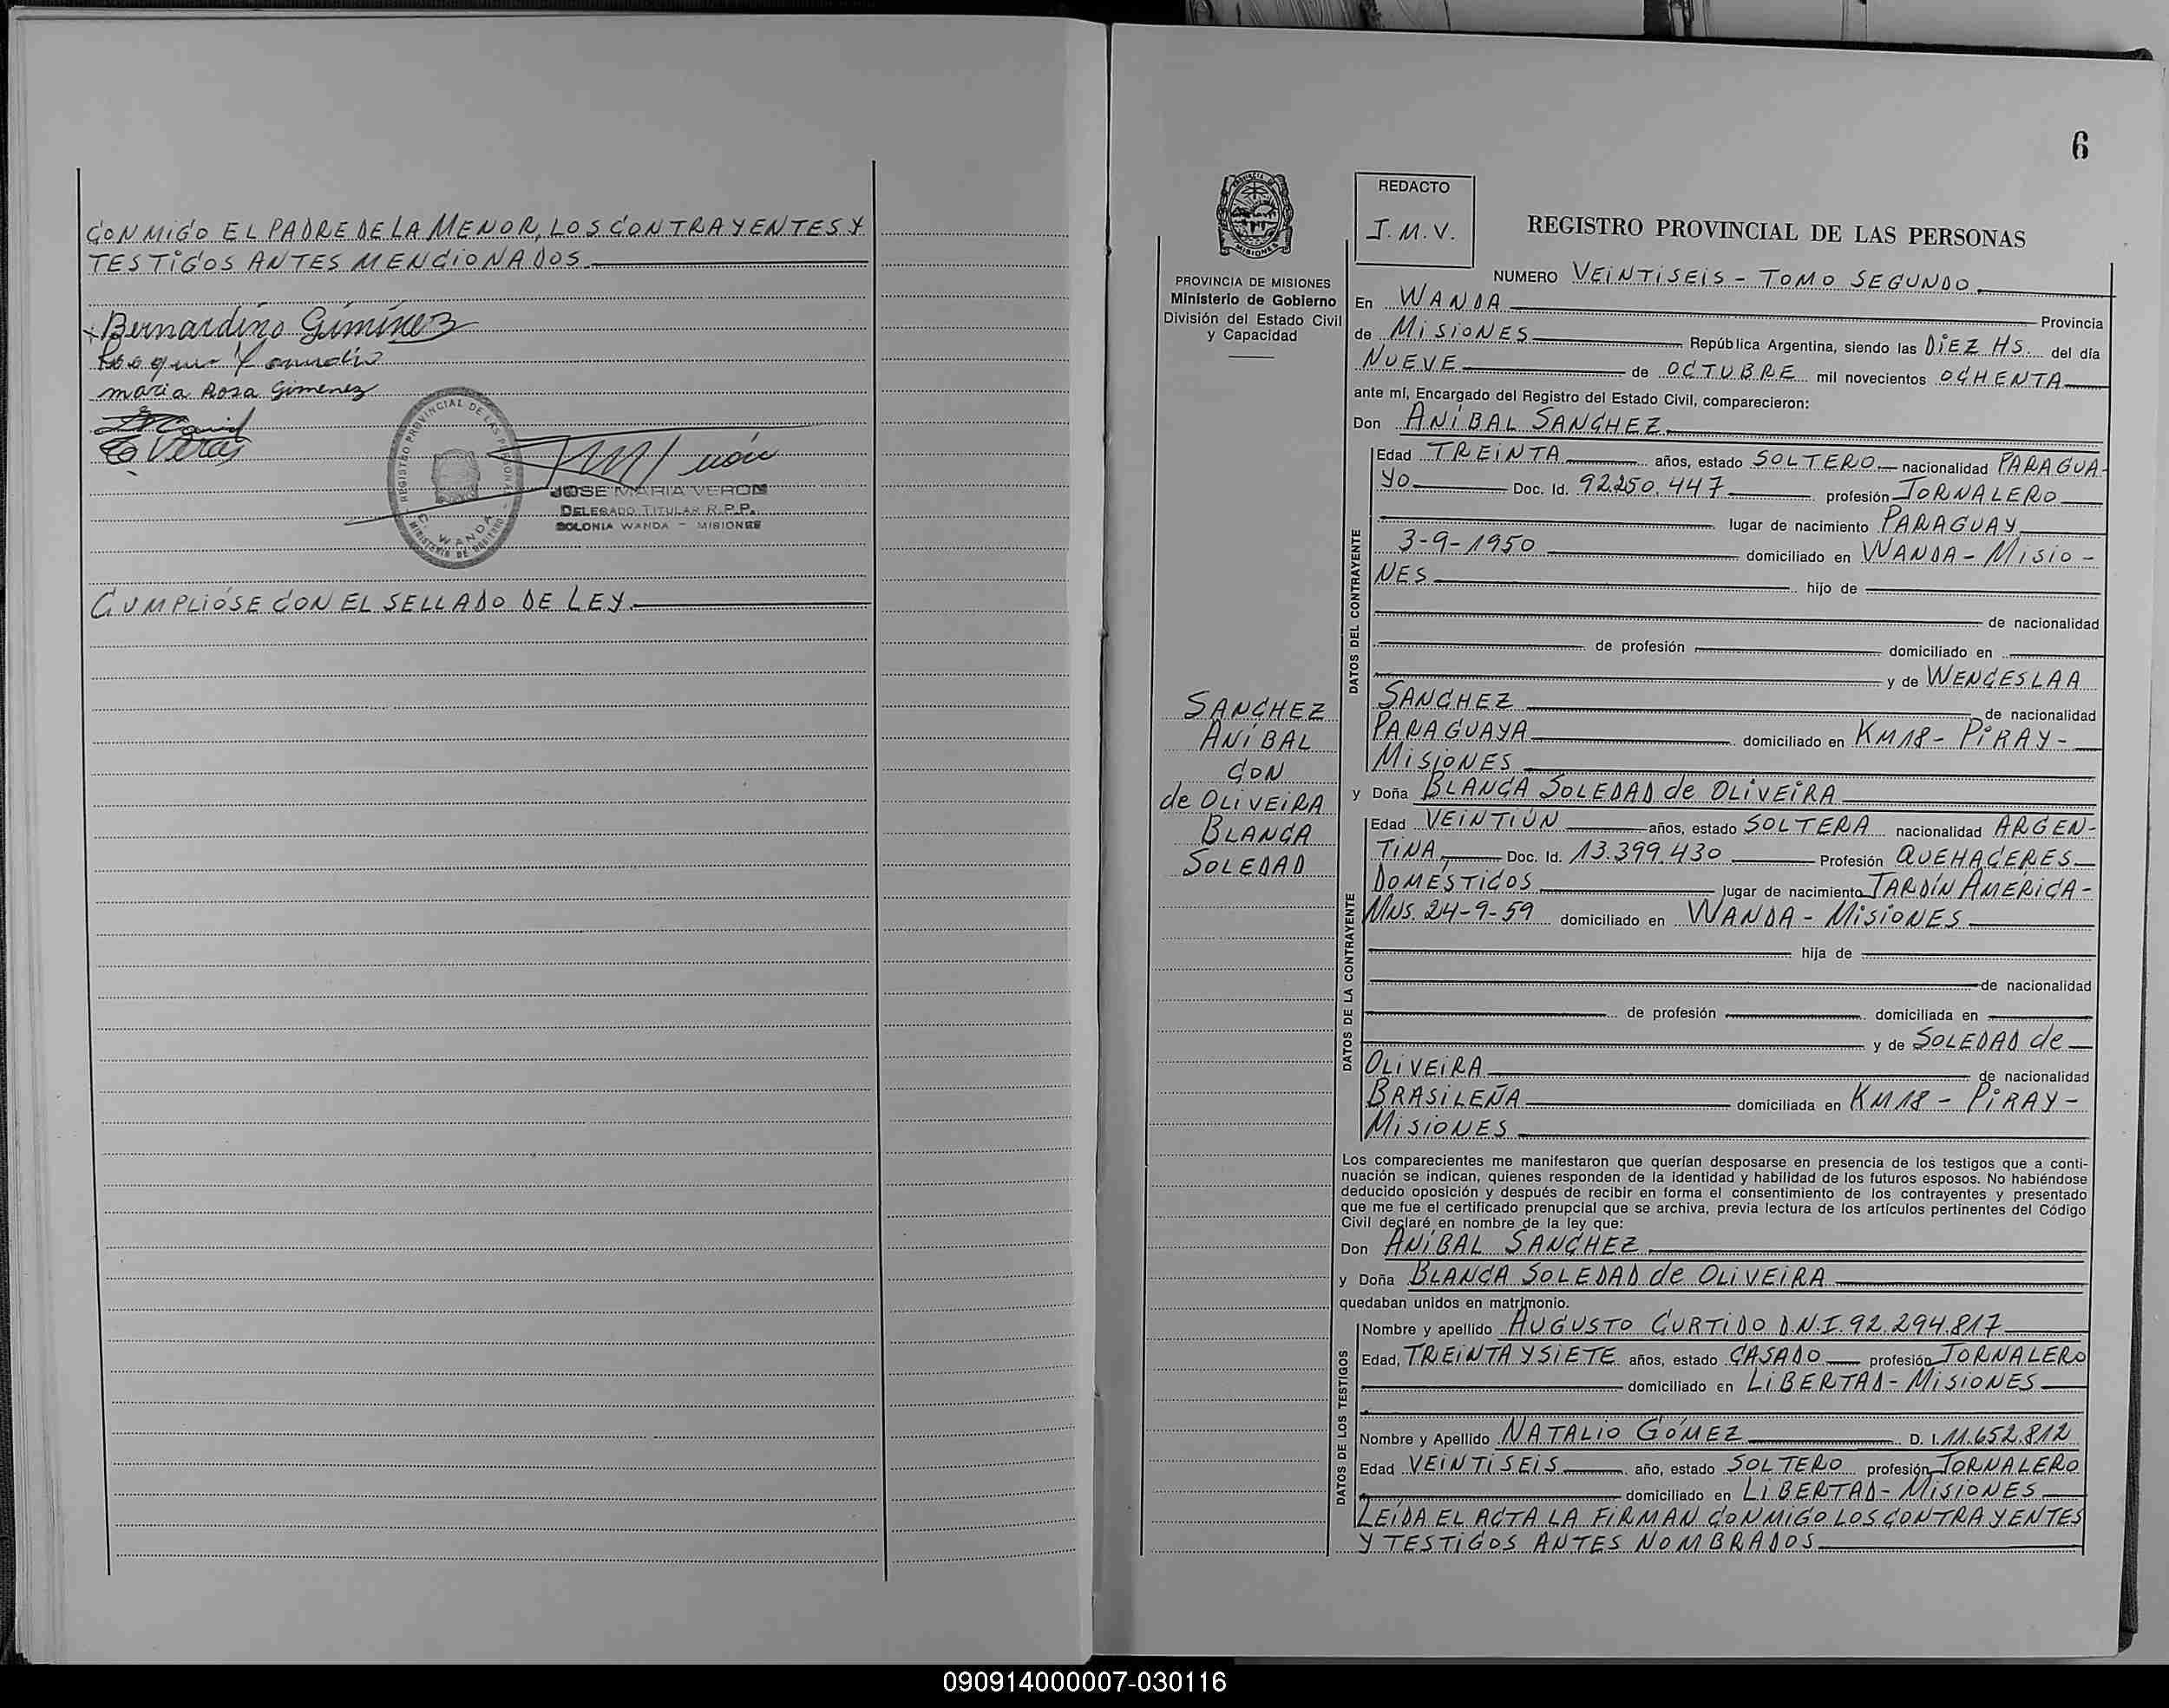 CONMIGO EL PADRE DE LA MENOR, LOS CONTRAYENTES Y
TESTIGOS ANTES MENCIONADOS.
Bernardino Giminez
maria Rosa Gimenez
REGISTRO PROVINCIAL DE LAS PERSONAS
C. WANDA
MINISTERIO DE GOBIERNO
JOSE MARIA VERON
DELEGADO TITULAR R.P.P.
COLONIA WANDA - MISIONES
CUMPLIÓSE CON EL SELLADO DE LEY.
6
REDACTO
J.M.V.
REGISTRO PROVINCIAL DE LAS PERSONAS
PROVINCIA DE MISIONES
Ministerio de Gobierno
División del Estado Civil
y Capacidad
SANCHEZ
ANÍBAL
CON
de OLIVEIRA
BLANCA
SOLEDAD
NUMERO VEINTISEIS - TOMO SEGUNDO.
En WANDA Provincia
de MISIONES República Argentina, siendo las DIEZ HS. del día
NUEVE de OCTUBRE mil novecientos OCHENTA
ante mí, Encargado del Registro del Estado Civil, comparecieron:
Don ANÍBAL SANCHEZ
DATOS DEL CONTRAYENTE
Edad TREINTA años, estado SOLTERO nacionalidad PARAGUA-
YO Doc. Id. 92.250.447 profesión JORNALERO
lugar de nacimiento PARAGUAY
3-9-1950 domiciliado en WANDA - MISIO-
NES hijo de
de nacionalidad
de profesión domiciliado en
y de WENCESLAA
SANCHEZ de nacionalidad
PARAGUAYA domiciliado en KM 18 - PIRAY -
MISIONES
y Doña BLANCA SOLEDAD de OLIVEIRA
DATOS DE LA CONTRAYENTE
Edad VEINTIÚN años, estado SOLTERA nacionalidad ARGEN-
TINA Doc. Id. 13.399.430 Profesión QUEHACERES
DOMÉSTICOS lugar de nacimiento JARDÍN AMÉRICA -
MNS. 24-9-59 domiciliado en WANDA - MISIONES
hija de
de nacionalidad
de profesión domiciliada en
y de SOLEDAD de
OLIVEIRA de nacionalidad
BRASILEÑA domiciliada en KM 18 - PIRAY -
MISIONES
Los comparecientes me manifestaron que querían desposarse en presencia de los testigos que a conti-
nuación se indican, quienes responden de la identidad y habilidad de los futuros esposos. No habiéndose
deducido oposición y después de recibir en forma el consentimiento de los contrayentes y presentado
que me fue el certificado prenupcial que se archiva, previa lectura de los artículos pertinentes del Código
Civil declaré en nombre de la ley que:
Don ANÍBAL SANCHEZ
y Doña BLANCA SOLEDAD de OLIVEIRA
quedaban unidos en matrimonio.
DATOS DE LOS TESTIGOS
Nombre y apellido AUGUSTO CURTIDO D.N.I. 92.294.817
Edad, TREINTA Y SIETE años, estado CASADO profesión JORNALERO
domiciliado en LIBERTAD - MISIONES
Nombre y Apellido NATALIO GÓMEZ D. I. 11.652.812
Edad VEINTISEIS año, estado SOLTERO profesión JORNALERO
domiciliado en LIBERTAD - MISIONES
LEÍDA EL ACTA LA FIRMAN CONMIGO LOS CONTRAYENTES
Y TESTIGOS ANTES NOMBRADOS
090914000007-030116